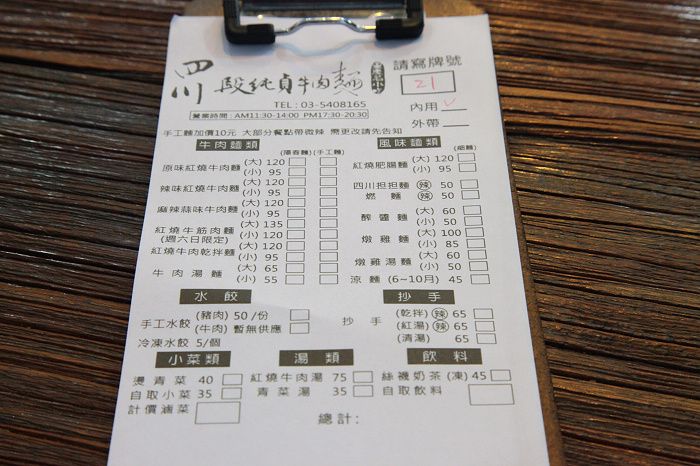 四川 段純貞牛肉麵 請寫牌號
21
TEL：03-5408165
內用 ✓
營業時間：AM11:30-14:00 PM17:30-20:30
外帶
手工麵加價10元 大部分餐點帶微辣 需更改請先告知
牛肉麵類
(陽春麵)(手工麵)
原味紅燒牛肉麵 (大) 120
(小) 95
辣味紅燒牛肉麵 (大) 120
(小) 95
麻辣蒜味牛肉麵 (大) 120
(小) 95
紅燒牛筋肉麵 (大) 135
(週六日限定) (小) 120
紅燒牛肉乾拌麵 (大) 120
(小) 95
牛肉湯麵 (大) 65
(小) 55
風味麵類
(細麵)
紅燒肥腸麵 (大) 120
(小) 95
四川担担麵 (辣) 50
燃麵 (辣) 50
醡醬麵 (大) 60
(小) 50
燉雞麵 (大) 100
(小) 85
燉雞湯麵 (大) 60
(小) 50
涼麵 (6~10月) 45
水餃
手工水餃 (豬肉) 50/份
(牛肉) 暫無供應
冷凍水餃 5/個
抄手
抄手 (乾拌) (辣) 65
(紅湯) (辣) 65
(清湯) 65
小菜類
燙青菜 40
自取小菜 35
計價滷菜
湯類
紅燒牛肉湯 75
青菜湯 35
飲料
絲襪奶茶 (凍) 45
自取飲料
總計：